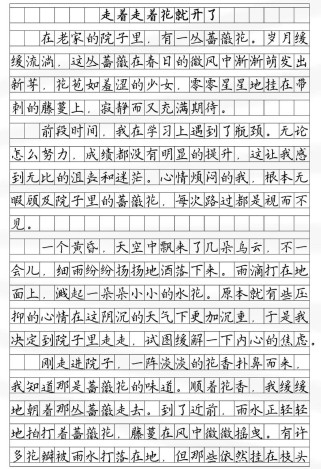 走着走着花就开了
在老家的院子里，有一丛蔷薇花。岁月缓
缓流淌，这丛蔷薇在春日的微风中渐渐萌发出
新芽，花苞如羞涩的少女，零零星星地挂在带
刺的藤蔓上，寂静而又充满期待。
前段时间，我在学习上遇到了瓶颈。无论
怎么努力，成绩都没有明显的提升，这让我感
到无比的沮丧和迷茫。心情烦闷的我，根本无
暇顾及院子里的蔷薇花，每次路过都是视而不
见。
一个黄昏，天空中飘来了几朵乌云，不一
会儿，细雨纷纷扬扬地洒落下来。雨滴打在地
面上，溅起一朵朵小小的水花。原本就有些压
抑的心情在这阴沉的天气下更加沉重，于是我
决定到院子里走走，试图缓解一下内心的焦虑。
刚走进院子，一阵淡淡的花香扑鼻而来，
我知道那是蔷薇花的味道。顺着花香，我缓缓
地朝着那丛蔷薇走去。到了近前，雨水正轻轻
地拍打着蔷薇花，藤蔓在风中微微摇曳。有许
多花瓣被雨水打落在地，但那些依然挂在枝头